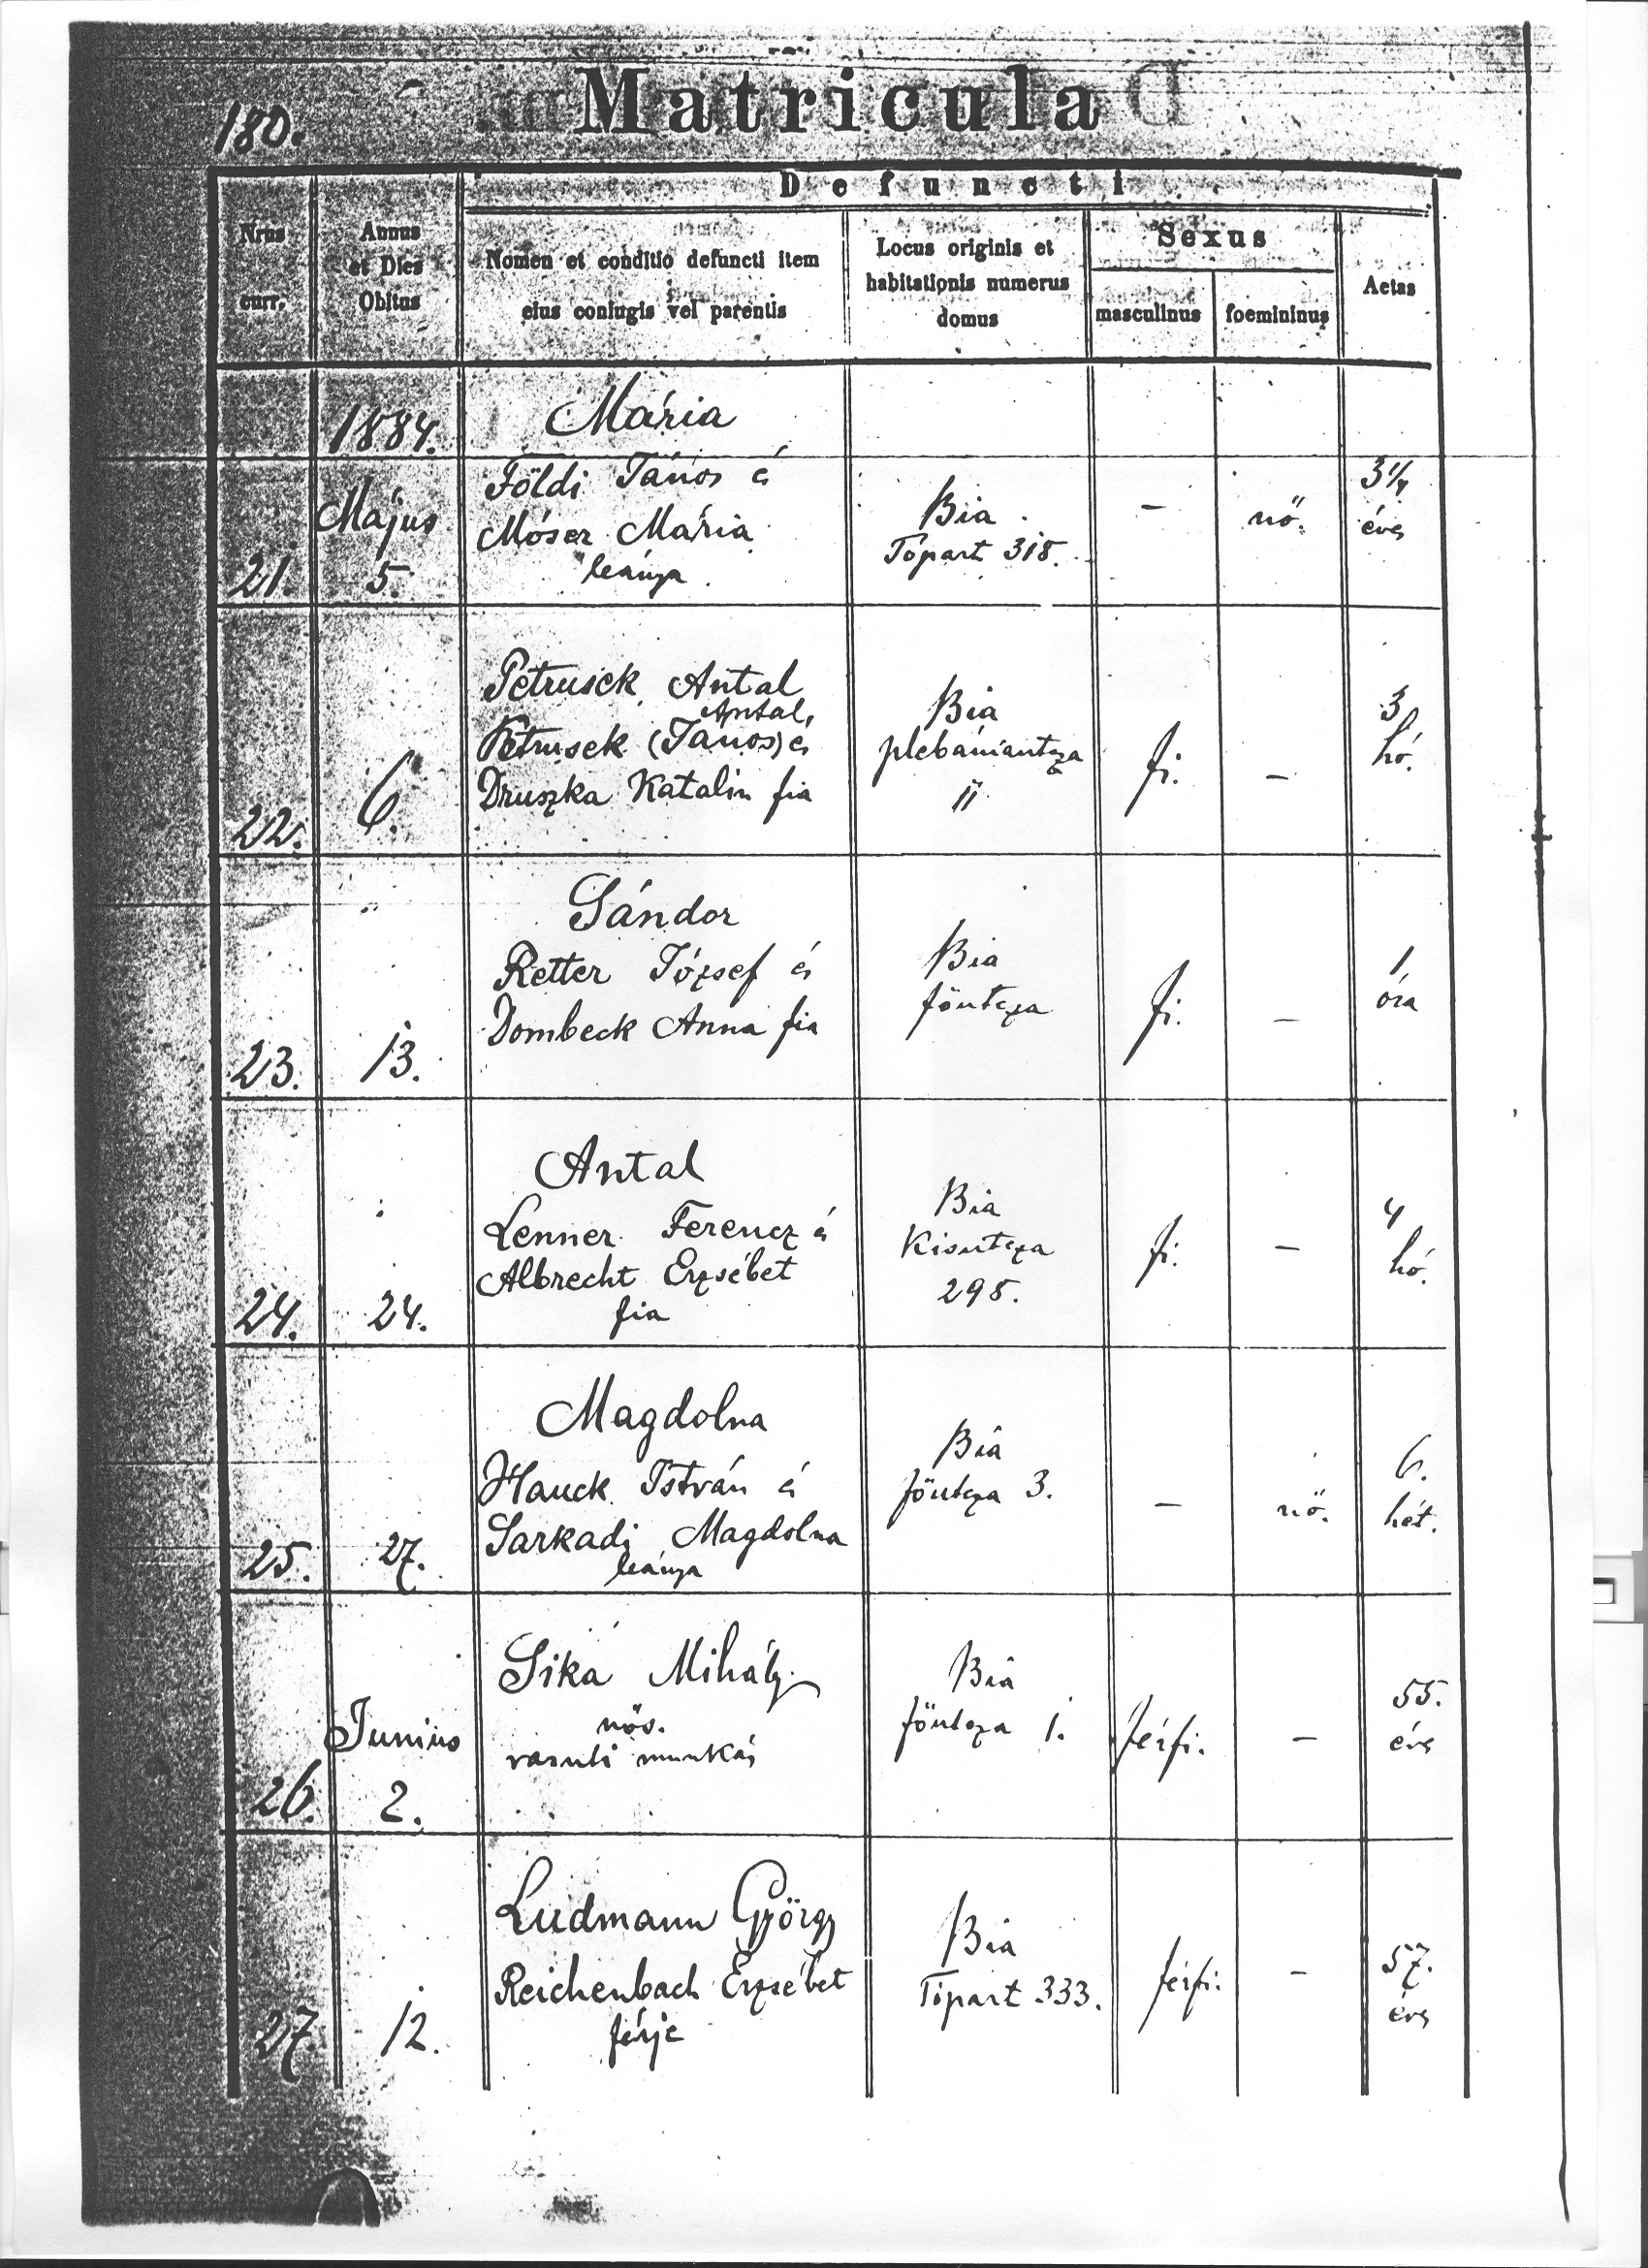 180.
Matricula
Defuncti
Nrus
curr.
Annus
et Dies
Obitus
Nomen et conditio defuncti item
eius coniugis vel parentis
Locus originis et
habitationis numerus
domus
Sexus
masculinus
foemininus
Aetas
1884.
Május
21.
5.
Mária
Földi János és
Móser Mária
leánya
Bia
Tópart 318.
-
nő.
3 1/4
éves
22.
6.
Petrusek Antal
Antal,
Petrusek (János) és
Druszka Katalin fia
Bia
plebániautcza
11
fi.
-
3
hó.
23.
13.
Sándor
Retter József és
Dombeck Anna fia
Bia
főutcza
fi.
-
1
óra
24.
24.
Antal
Lenner Ferencz és
Albrecht Erzsébet
fia
Bia
Kisutcza
298.
fi.
-
4
hó.
25.
27.
Magdolna
Hauck István és
Sarkadi Magdolna
leánya
Bia
főutcza 3.
-
nő.
6.
hét.
Junius
26.
2.
Sika Mihály
nős.
vasuti munkás
Bia
főutcza 1.
férfi.
-
55.
éves
27.
12.
Ludmann György
Reichenbach Erzsébet
férje
Bia
Tópart 333.
férfi.
-
57.
éves